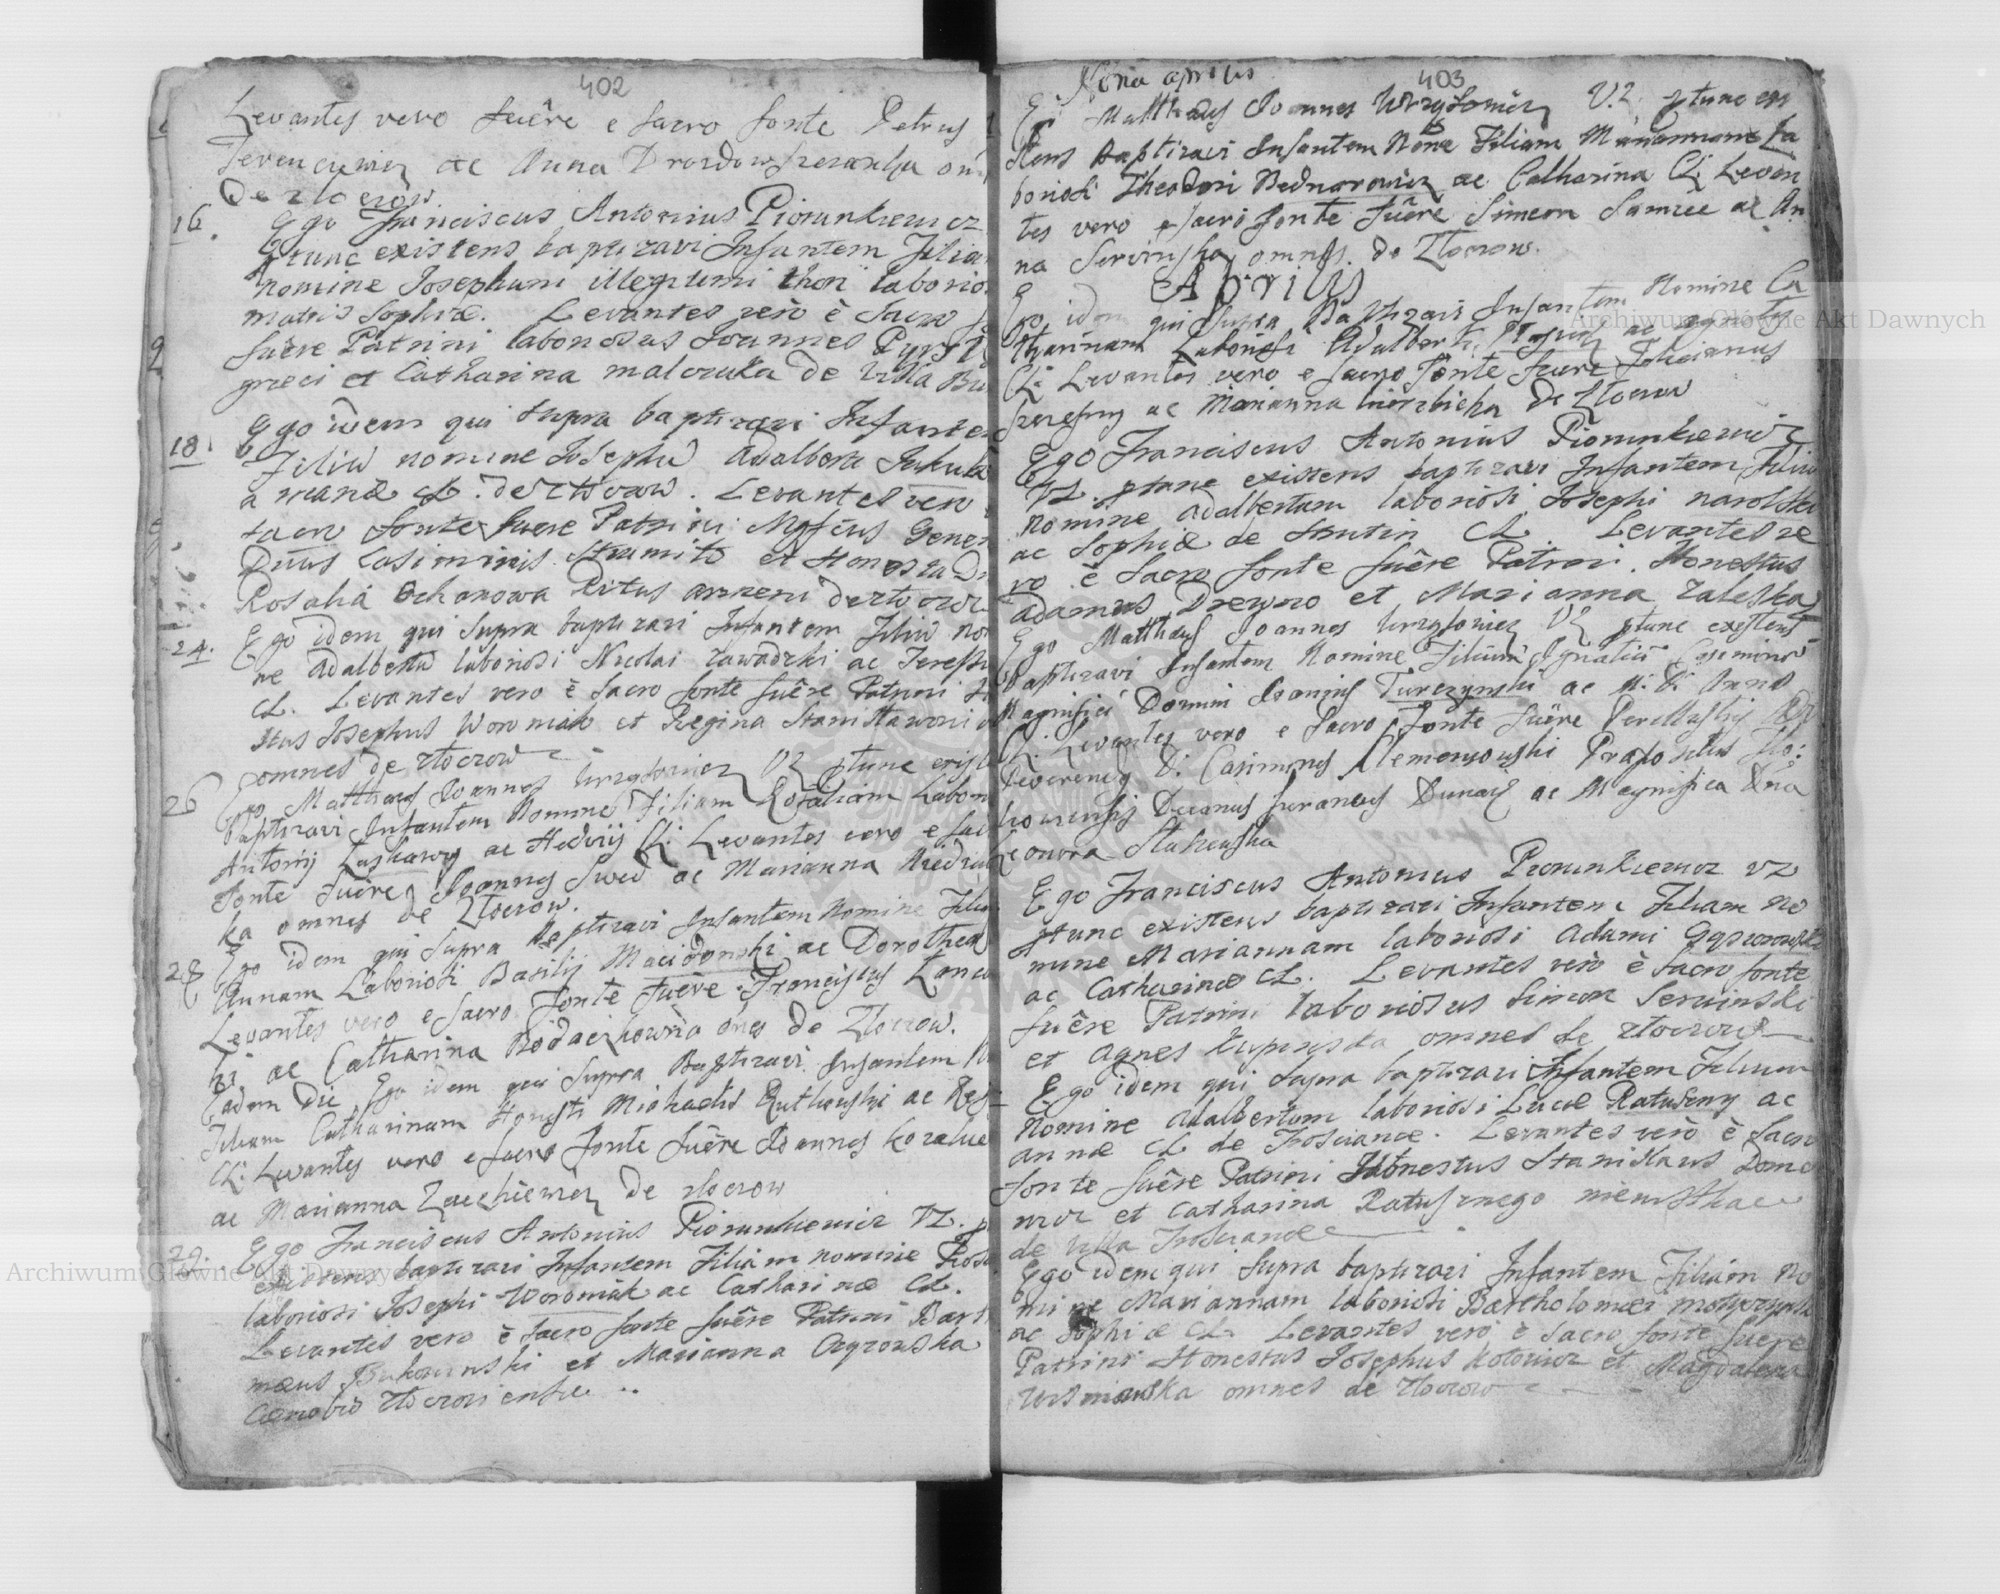 402
Levantes vero fuêre e Sacro fonte Petrus
ac Anna
de Złoczow.
16. Ego Franciscus Antonius Piorunkiewicz
ptunc existens baptizavi Infantem Filiu
nomine Josephum illegitimi thori laborio
matris Sophiæ. Levantes verò è Sacro
fuêre Patrini laboriosus Joannes
græci et Catharina malczuka de Villa Bu
18. Ego idem qui supra baptizavi Infantem
Filiũ nomine Josephũ Adalberti
a rianæ CL. de Złoczow. Levantes vero
sacro fonte fuere Patrini Mgfcus Gener
Dnus Casimirus Strumiło et Honesta D
Rosalia Ochanowa Ritus armeni de Złoczow
24. Ego idem qui Supra baptizavi Infantem Filiũ no
ne Adalbertũ laboriosi Nicolai Zawadzki ac Teressæ
CL. Levantes vero è Sacro fonte fuêre Patrini Ho
stus Josephus Woroniak et Regina Stanisławowi
omnes de Złoczow
26 Ego Matthæus Joannes Urzysowicz VZ ptunc exist
Baptizavi Infantem Nomine Filiam Rosaliam Labori
Antonij Laskawy ac Hedvij CL: Levantes vero e Sac
Fonte fuêre Joannes Swed ac Marianna
ka omnes de Złoczow.
28 Ego idem qui supra Baptizavi Infantem Nomine Filiam
Annam Laboriosi Basilij Macidonski ac Dorothea
Levantes vero e Sacro Fonte fuêre Franciscus
ki ac Catharina ões de Złoczow.
Eadem Die Ego idem qui Supra Baptizavi Infantem N
Filiam Catharinam Honesti Michaelis Rutkowski ac Reg
CL: Levantes vero e Sacro Fonte fuêre Joannes
ac Marianna de Złoczow
29. Ego Franciscus Antonius Piorunkiewicz VZ. p
existens baptizavi Infantem Filiam nomine Rosa
laboriosi Josephi Woroniak ac Catharinæ CL.
Levantes vero è Sacro fonte fuêre Patrini Bart
mæus Bukowinski et Marianna Ogrowska
Cænobio Złoczoviensi
403
Nona aprilis
Ego Matthæus Joannes Urzysowicz VZ. ptunc exi
stens Baptizavi Infantem None Filiam Mariannam La
boriosi Theodori Bednarowicz ac Catharina CL: Levan
tes vero e Sacro Fonte fuêre Simeon ac An
na Serwinska omnes de Złoczow.
Aprilis
Ego idem qui Supra Baptizavi Infantem Nomine Ca
tharinam Laboriosi Adalberti ac Agnetis
CL: Levantes vero e Sacro Fonte fuere Felicianus
ac Marianna Wierzbicka de Złoczow
Ego Franciscus Antonius Piorunkiewicz
VZ. ptunc existens baptizavi Infantem Filiũ
nomine Adalbertum laboriosi Josephi narolski
ac Sophiæ de Strutin CL. Levantes ve
ro è Sacro fonte fuêre Patrini. Honestus
Adamus Drewno et Marianna Zaleska
Ego Matthæus Joannes Urzysowicz VZ ptunc existens
Baptizavi Infantem Nomine Filium Ignatiũ Casimirũ
Magnifici Domini Joannis Turczynski ac M: D: Anna
CL: Levantes vero e Sacro Fonte fuêre Perillustris
Reverendus D. Casimirus Klemensowski Præpositus Zło:
Decanus ac Magnifica Dna
Leonora
Ego Franciscus Antonius Piorunkiewicz VZ
ptunc existens baptizavi Infantem Filiam no
mine Mariannam laboriosi Adami
ac Catharinæ CL. Levantes verò è Sacro fonte
fuêre Patrini laboriosus Simon Serwinski
et Agnes omnes de Złoczow
Ego idem qui Supra baptizavi Infantem Filium
Nomine Adalbertum laboriosi Lucæ Ratuszny ac
annæ CL de Trosciance. Levantes verò è Sacro
fonte fuêre Patrini Honestus Stanislaus Dome
et Catharina Ratusznego
de Villa Troscianæ
Ego idem qui Supra baptizavi Infantem Filiam No
mine Mariannam laboriosi Bartholomæi
ac Sophiæ CL Levantes verò è Sacro fonte fuere
Patrini Honestus Josephus Kotowicz et Magdalena
Wisniowska omnes de Złoczow
Archiwum Główne Akt Dawnych
Archiwum Główne Akt Dawnych